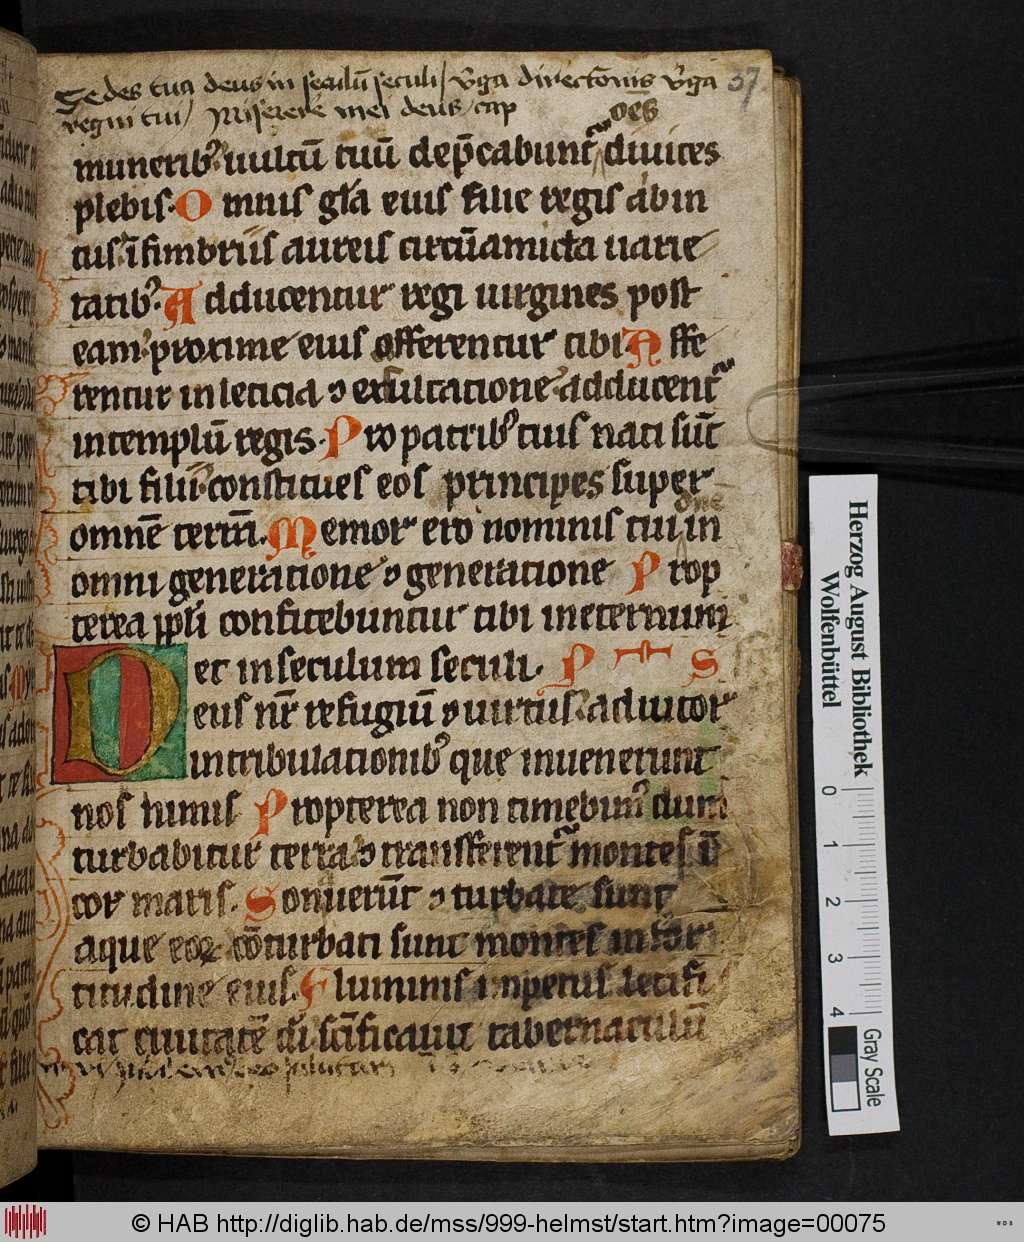 Sedes tua deus in seculū seculi / v̄ga directōnis v̄ga 37
regni tui / Miserere mei deus / cap
oēs
munerib⁹ uultū tuū dep̄cabunt᷑ diuites
plebis. Omnis gl̄a eius filie regis abin
tus ī fimbriis aureis circūamicta uarie
tatib⁹. Adducentur regi uirgines post
eam proxime eius offerentur tibi Affe
rentur in leticia ⁊ exultatione adducent᷑
in templū regis. Pro patrib⁹ tuis nati sūt
tibi filii constitues eos principes super
omnē terrā. Memor ero nominis tui in
omni generatione ⁊ generatione Prop
terea ppl̄i confitebuntur tibi in eternum
et in seculum seculi. P S
Deus nr̄ refugiū ⁊ uirtus adiutor
in tribulationib⁹ que inuenerunt
nos nimis Propterea non timebim⁹ dum
turbabitur terra ⁊ transferent᷑ montes ī
cor maris. Sonuerūt ⁊ turbate sunt
aque eoꝝ cōturbati sunt montes in for
titudine eius. Fluminis impetus letifi
cat ciuitatē dī scīficauit tabernaculū
Herzog August Bibliothek
Wolfenbüttel
0 1 2 3 4
Gray Scale
© HAB http://diglib.hab.de/mss/999-helmst/start.htm?image=00075